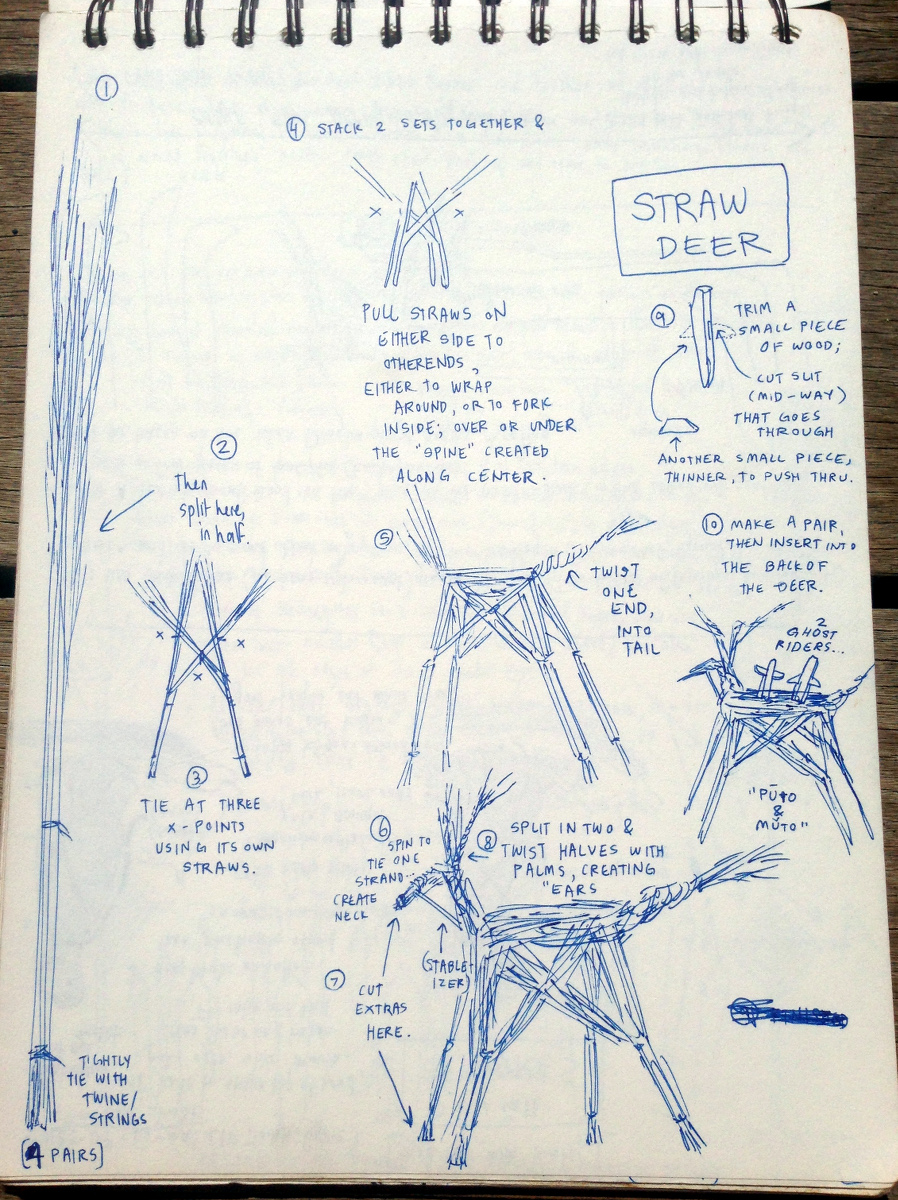 STRAW
DEER
①
TIGHTLY
TIE WITH
TWINE/
STRINGS
[4 PAIRS]
②
Then
split here,
in half.
x x
x
③
TIE AT THREE
X-POINTS
USING ITS OWN
STRAWS.
④ STACK 2 SETS TOGETHER &
x x
PULL STRAWS ON
EITHER SIDE TO
OTHERENDS,
EITHER TO WRAP
AROUND, OR TO FORK
INSIDE; OVER OR UNDER
THE "SPINE" CREATED
ALONG CENTER.
⑤
TWIST
ONE
END,
INTO
TAIL
⑥
SPIN TO
TIE ONE
STRAND...
CREATE
NECK
(STABLE-
IZER)
⑦
CUT
EXTRAS
HERE.
⑧ SPLIT IN TWO &
TWIST HALVES WITH
PALMS, CREATING
"EARS
⑨ TRIM A
SMALL PIECE
OF WOOD;
CUT SLIT
(MID-WAY)
THAT GOES
THROUGH
ANOTHER SMALL PIECE,
THINNER, TO PUSH THRU.
⑩ MAKE A PAIR,
THEN INSERT INTO
THE BACK OF
THE DEER.
2
GHOST
RIDERS...
"PŪTO
&
MŬTO"